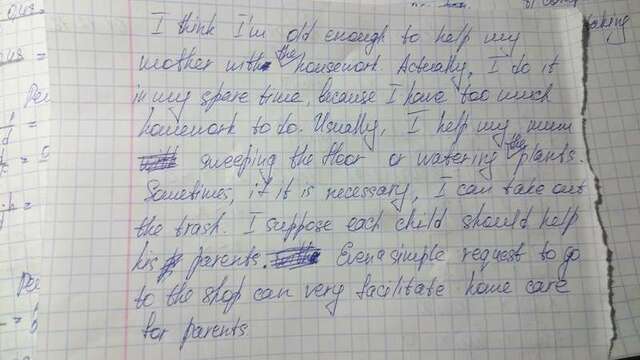 I think I'm old enough to help my
mother with the housework. Actually, I do it
in my spare time, because I have too much
homework to do. Usually, I help my mum
sweeping the floor or watering the plants.
Sometimes, if it is necessary, I can take out
the trash. I suppose each child should help
his parents. Even a simple request to go
to the shop can very facilitate home care
for parents